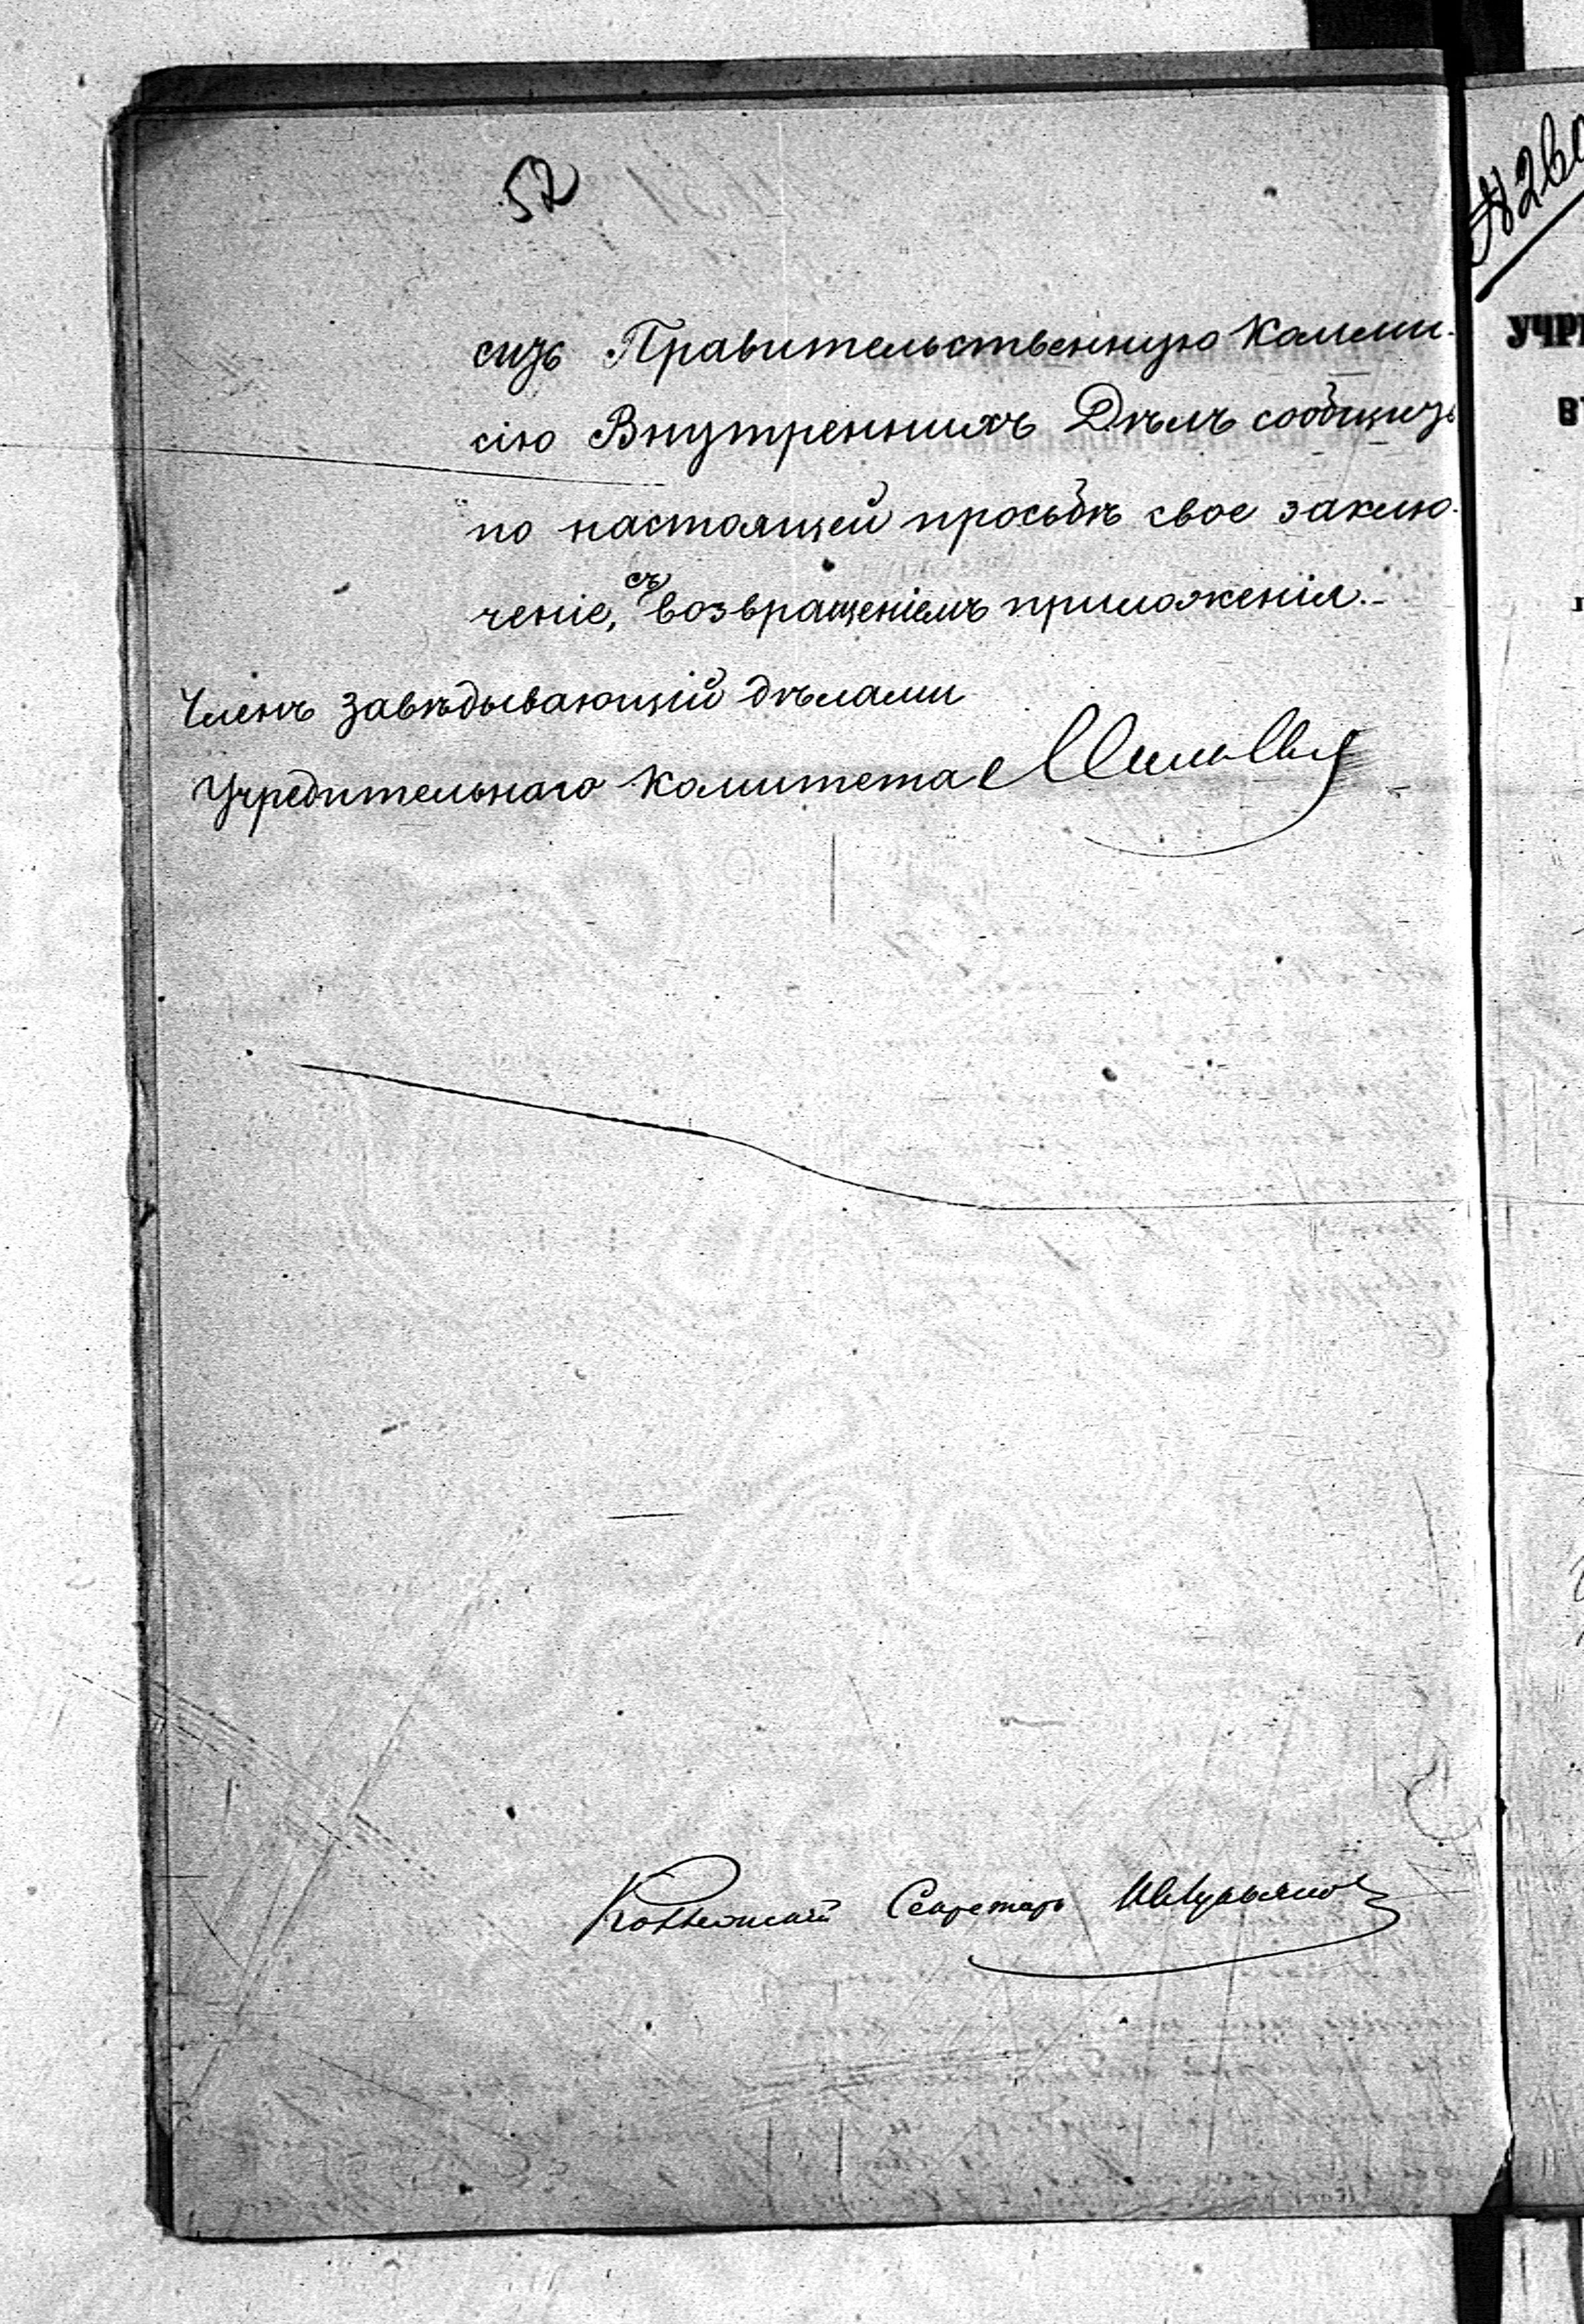 52
сить Правительственную Комми-
сію Внутреннихъ Дѣлъ сообщить
по настоящей просьбѣ свое заклю-
ченіе, съ возвращеніемъ приложенія.-
Членъ завѣдывающій дѣлами
Учредительнаго Комитета
Секретарь
№ 260
УЧРЕ